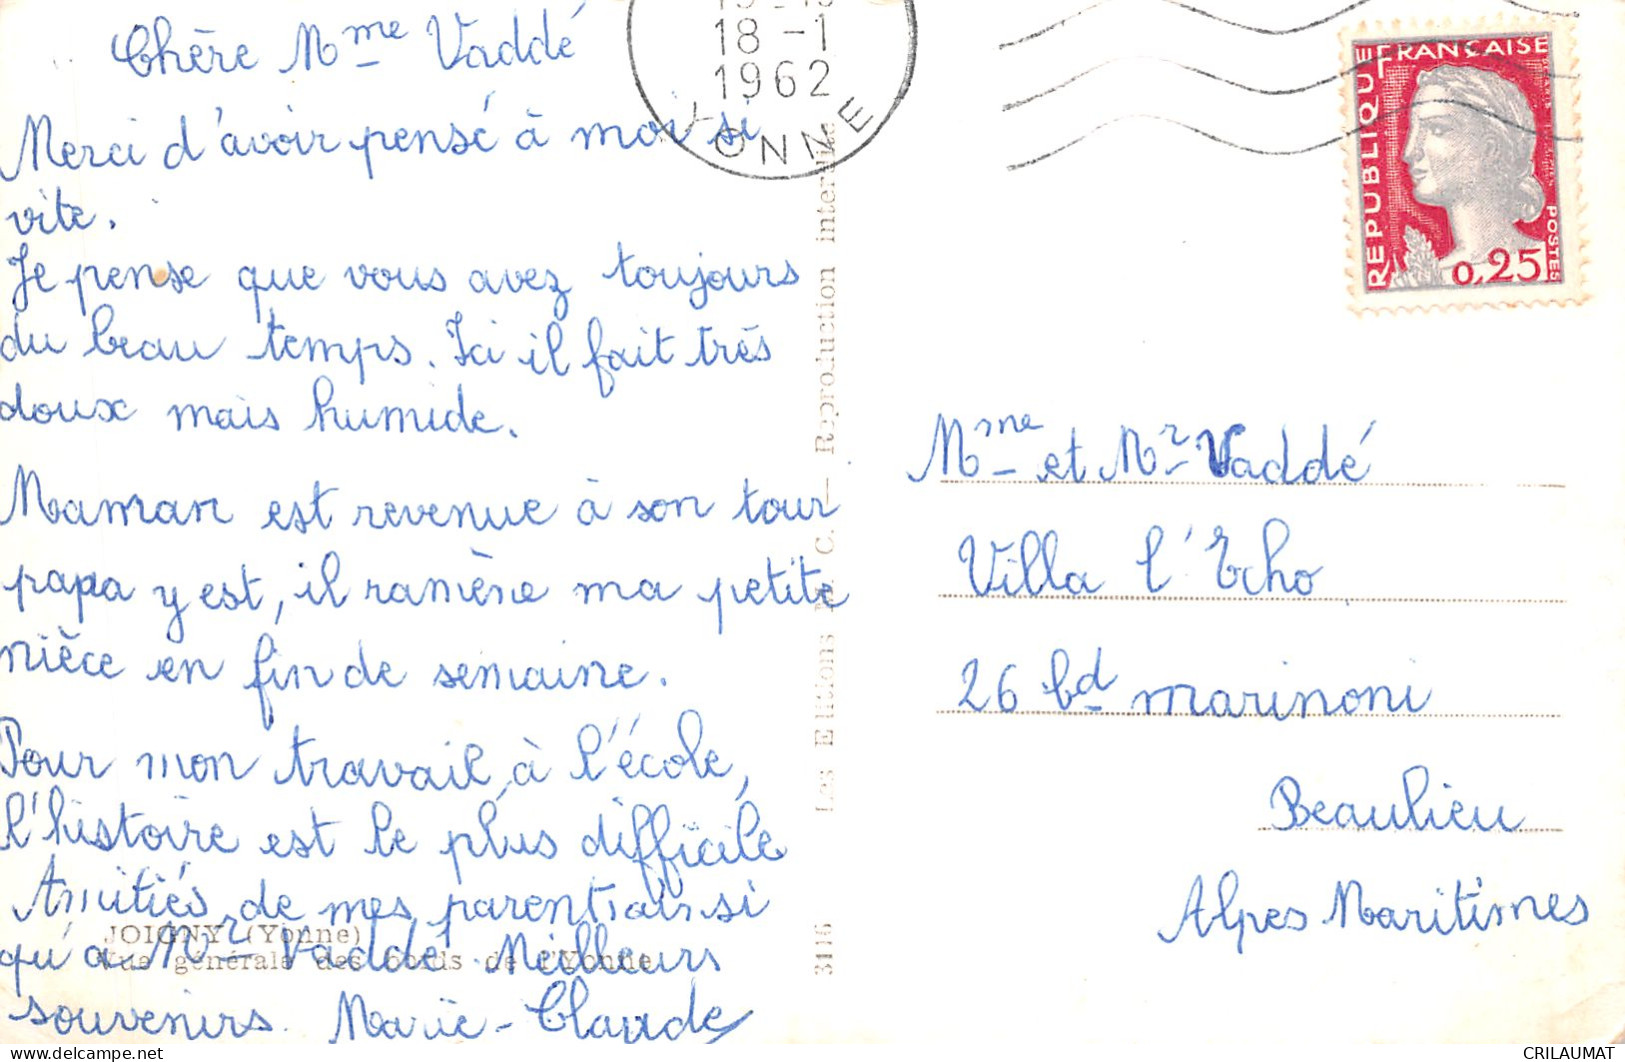 Chère Mme Vaddé
Merci d'avoir pensé à moi si
vite.
Je pense que vous avez toujours
du beau temps. Ici il fait très
doux mais humide.
Maman est revenue à son tour
papa y est, il ramène ma petite
nièce en fin de semaine.
Pour mon travail, à l'école,
l'histoire est le plus difficile
Amitiés de mes parents ainsi
qu'à Mr Vaddé. Meilleurs
souvenirs. Marie-Claude
JOIGNY (Yonne)
Vue générale des bords de l'Yonne
3116 Les Editions C. — Reproduction interdite
18 -1
1962
YONNE
REPUBLIQUE FRANÇAISE
POSTES
0,25
Mme et Mr Vaddé
Villa l'Echo
26 bd marinoni
Beaulieu
Alpes Maritimes
CRILAUMAT